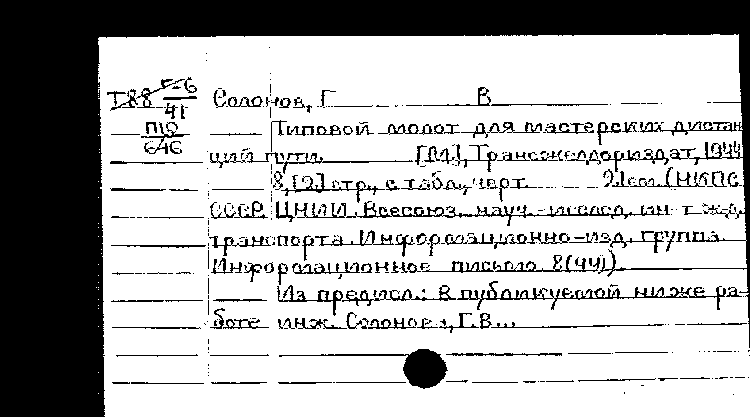 Т88 Г-6
41
П19
646
Солонов, Г В
Типовой молот для мастерских дистан
ций пути. [М], Трансжелдориздат, 1944
8, [2] стр., с табл., черт. 21см. (НКПС
СССР. ЦНИИ. Всесоюз. науч.-исслед. ин-т ж.д.
транспорта. Информационно-изд. группа.
Информационное письмо 8(44)).
Из предисл.: В публикуемой ниже ра-
боте инж. Солонова, Г.В...